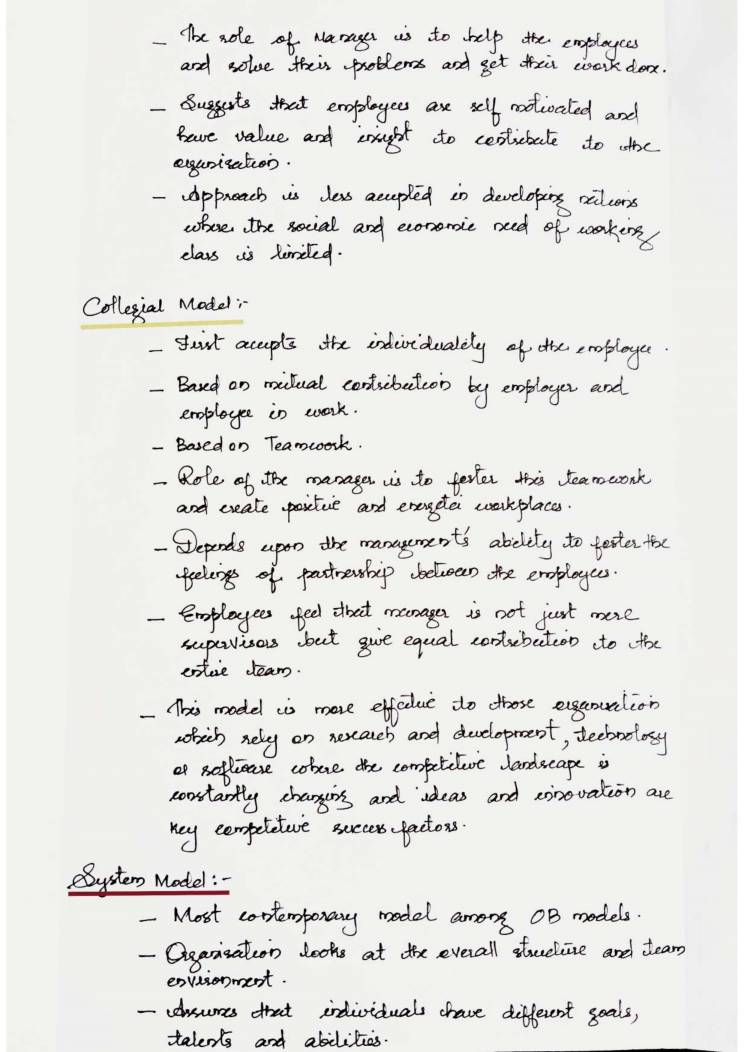 - The role of Manager is to help the employees
and solve their problems and get their work done.
- Suggests that employees are self motivated and
have value and insight to contribute to the
organisation.
- Approach is less accepted in developing nations
where the social and economic need of working
class is limited.
Collegial Model :-
- First accepts the individuality of the employee.
- Based on mutual contribution by employer and
employee in work.
- Based on Teamwork.
- Role of the manager is to foster this teamwork
and create positive and energetic workplaces.
- Depends upon the management's ability to foster the
feelings of partnership between the employees.
- Employees feel that manager is not just mere
supervisors but give equal contribution to the
entire team.
- This model is more effective to those organisation
which rely on research and development, technology
or software where the competitive landscape is
constantly changing and ideas and innovation are
key competitive success factors.
System Model :-
- Most contemporary model among OB models.
- Organisation looks at the overall structure and team
environment.
- Assumes that individuals have different goals,
talents and abilities.